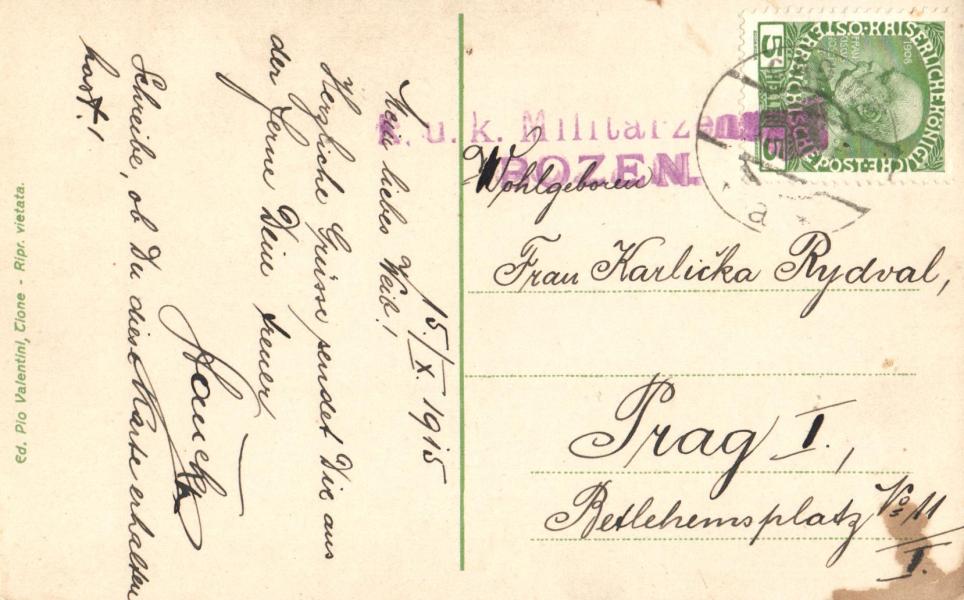 15./X. 1915
Mein liebes Weib!
Herzliche Grüsse sendet Dir aus
der Ferne Dein treuer
Schreibe, ob Du diese Karte erhalten
hast!
Ed. Pio Valentini, Tione - Ripr. vietata.
K. u. k. Militärzen
BOZEN.
KAISERLICHEKÖNIGLICHE
ÖSTERREICHISCHE POST
5 HELLER 5
1908
a
Wohlgeboren
Frau Karlička Rydval,
Prag I.,
Betlehemsplatz No 11
I.